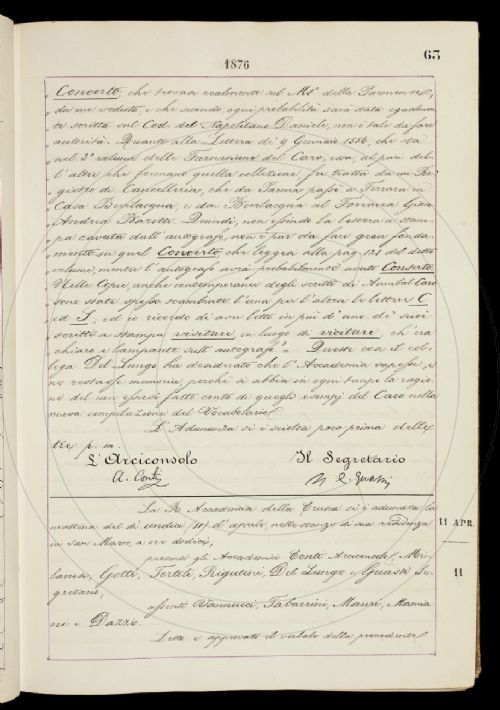 63
1876
Concerto, che trovasi realmente nel Ms. della Parmense,
da me veduto, e che secondo ogni probabilità sarà stata egualmen-
te scritta sul Cod. del Napoletano Daniele, non è tale da fare
autorità. Quanto alla Lettera de' 9 Gennaio 1554, che sta
nel 3° volume delle Farnesiane del Caro, essa, al pari del-
l'altre che formano quella collezione, fu tratta da un Re-
gistro di Cancelleria, che da Parma passò a Ferrara in
Casa Bevilacqua, e da Bevilacqua al Ferrarese Gio:
Andrea Barotti. Quindi, non essendo la lettera a stam-
pa cavata dall'autografo, non è pur da fare gran fonda-
mento su quel Concerto che leggesi alla pag. 121 del detto
volume, mentre l'autografo avrà probabilmente avuto Conserto.
Nelle Copie, anche contemporanee degli scritti di Annibal Caro
sono state spesso scambiate l'una per l'altra le lettere C
ed S, ed io ricordo di aver letto in più d'uno de' suoi
scritti a stampa visitare, in luogo di vicitare, ch'era
chiaro e lampante sull'autografo." Queste cose il col-
lega Del Lungo ha desiderato che l'Accademia sapesse, e
ne restasse memoria, perchè si abbia in ogni tempo la ragio-
ne del non essersi fatto conto di quegli esempj del Caro nella
nuova compilazione del Vocabolario.
L'Adunanza si è sciolta poco prima delle
tre p. m.
L'Arciconsolo Il Segretario
A. Conti
La R. Accademia della Crusca si è adunata la
mattina del dì undici (11) d'aprile nelle stanze di sua residenza
in San Marco, a ore dodici;
presenti gli Accademici Conti Arciconsolo, Mi-
lanesi, Gotti, Tortoli, Rigutini, Del Lungo e Guasti Se-
gretario;
assenti Vannucci, Tabarrini, Mauri, Mamia-
ni e Dazzi.
Letto e approvato il verbale della precedente
11 APR.
11